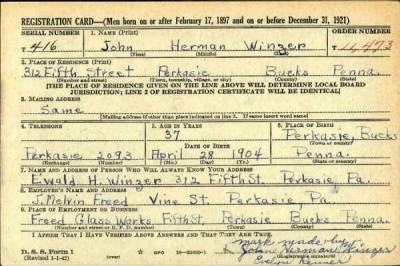 REGISTRATION CARD—(Men born on or after February 17, 1897 and on or before December 31, 1921)
SERIAL NUMBER 1. NAME (Print) ORDER NUMBER
T 416 John Herman Winzer 11,493
(First) (Middle) (Last)
2. PLACE OF RESIDENCE (Print)
312 Fifth Street Perkasie Bucks Penna.
(Number and street) (Town, township, village, or city) (County) (State)
[THE PLACE OF RESIDENCE GIVEN ON THE LINE ABOVE WILL DETERMINE LOCAL BOARD
JURISDICTION; LINE 2 OF REGISTRATION CERTIFICATE WILL BE IDENTICAL]
3. MAILING ADDRESS
Same
[Mailing address if other than place indicated on line 2. If same insert word same]
4. TELEPHONE 5. AGE IN YEARS 6. PLACE OF BIRTH
37 Perkasie, Bucks
DATE OF BIRTH (Town or county)
Perkasie 2093 April 28 1904 Penna.
(Exchange) (Number) (Mo.) (Day) (Yr.) (State or country)
7. NAME AND ADDRESS OF PERSON WHO WILL ALWAYS KNOW YOUR ADDRESS
Ewald H. Winzer 312 Fifth St. Perkasie, Pa.
8. EMPLOYER'S NAME AND ADDRESS
J. Melvin Freed Vine St. Perkasie, Pa.
9. PLACE OF EMPLOYMENT OR BUSINESS
Freed Glass Works Fifth St. Perkasie Bucks Penna.
(Number and street or R. F. D. number) (Town) (County) (State)
I AFFIRM THAT I HAVE VERIFIED ABOVE ANSWERS AND THAT THEY ARE TRUE.
mark made by
D. S. S. Form 1 GPO John Herman Winzer
(Revised 1-1-42) Evelyn